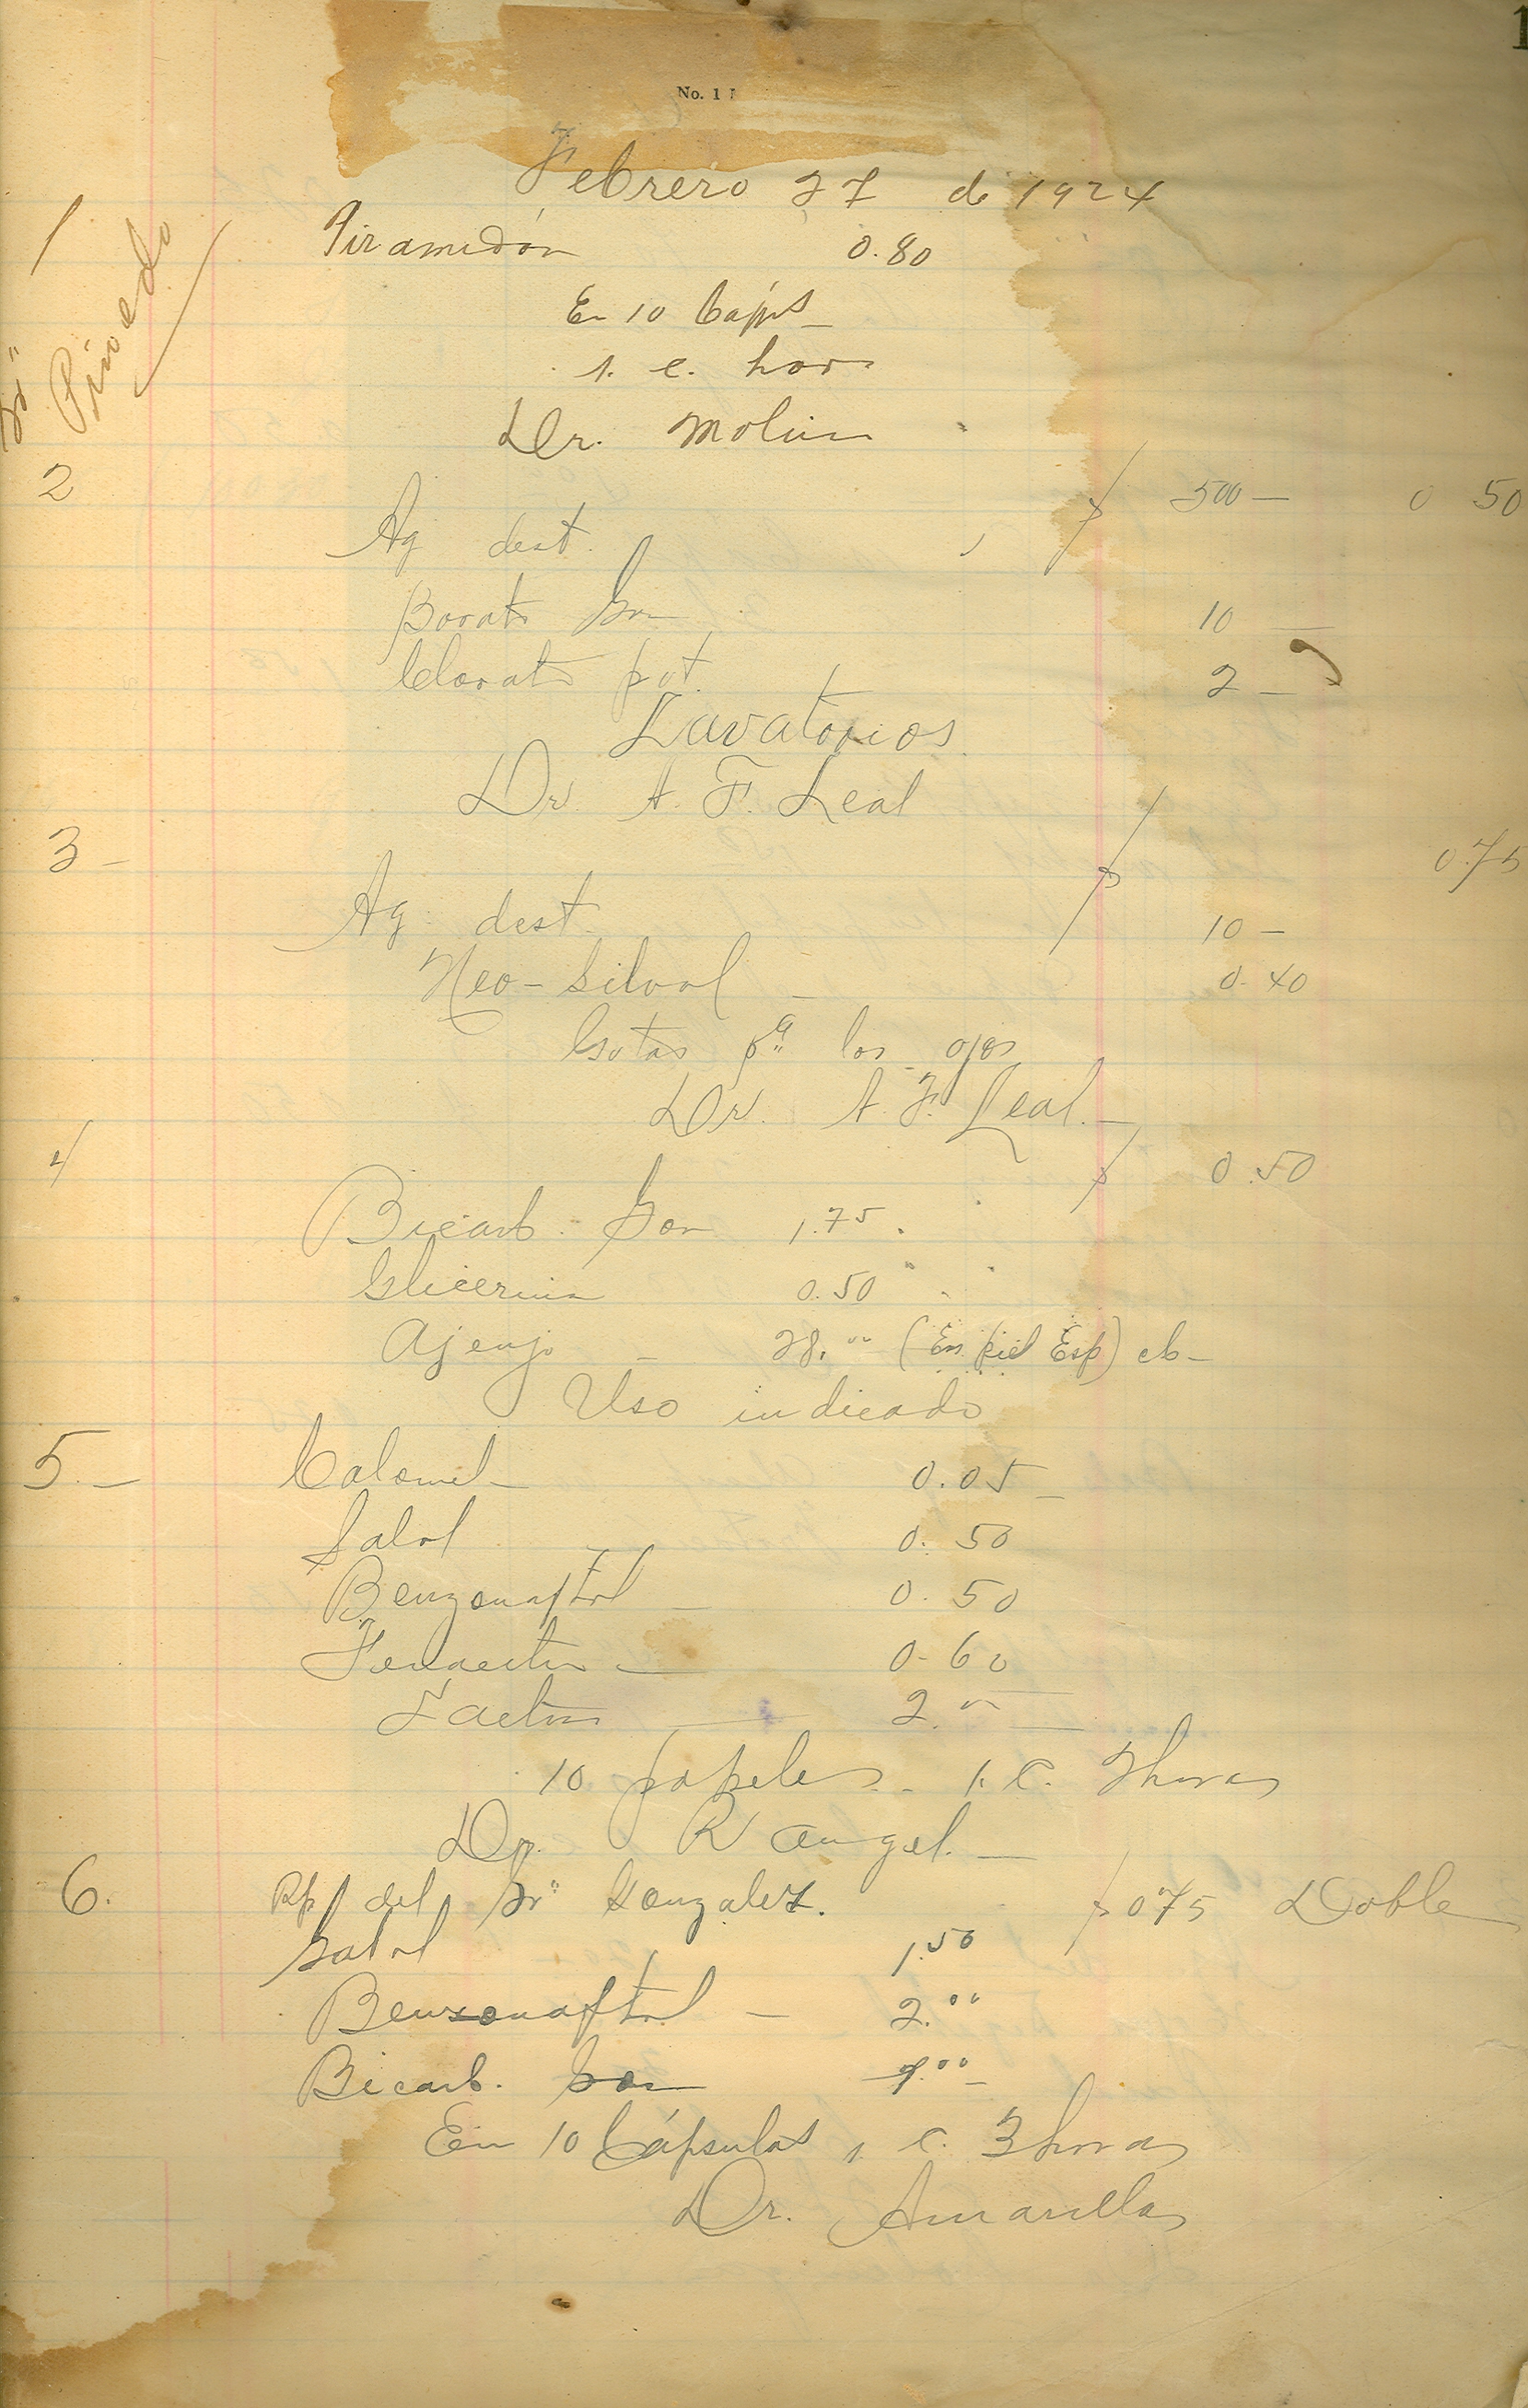 1
No. 1
Febrero 27 de 1924
1
Sr" Pinedo
Piramidón 0.80
En 10 Cápls
1. c. hora
Dr. Molina
2
$ 500 — 0 50
Aq dest.
Borato Son 10 —
Clorato pot. 2 —
Lavatorios
Dr. A. F. Leal
3 —
$ 0.75
Aq. dest. 10 —
Neo-Silvol — 0.40
Gotas pª los ojos
Dr. A. F. Leal. —
4
$ 0.50
Bicarb. Son 1.75
Glicerina 0.50
Ajenjo — 28.oo (En piel Esp) cb—
Uso indicado
5. — Calomel — 0.05 —
Salol 0.50
Benzonaftol — 0.50
Fenacetin — 0.60
Lactosa — 2.oo —
10 papeles. 1. c. 2horas
Dr. Rangel. —
6. Rp/ del Sr" Gonzalez. $ 075 Doble
Salol 1.50
Benzonaftol — 2.oo
Bicarb. Son 1.oo —
En 10 Cápsulas 1 c. 3horas
Dr. Amarillas